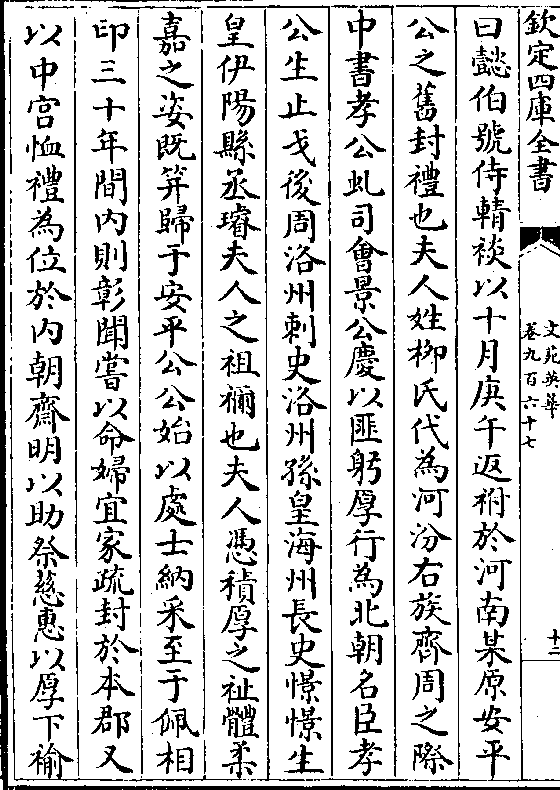 欽定四庫全書
文苑英華
卷九百六十七
十二
曰懿伯號侍輤裧以十月庚午返祔於河南某原安平
公之舊封禮也夫人姓栁氏代為河汾右族齊周之際
中書孝公虬司會景公慶以匪躬厚行為北朝名臣孝
公生止戈後周洛州刺史洛州孫皇海州長史憬憬生
皇伊陽縣丞璿夫人之祖禰也夫人憑積厚之祉體柔
嘉之姿既笄歸于安平公公始以處士納采至于佩相
印三十年間内則彰聞嘗以命婦宜家疏封於本郡又
以中宫恤禮為位於内朝齋明以助祭慈惠以厚下褕